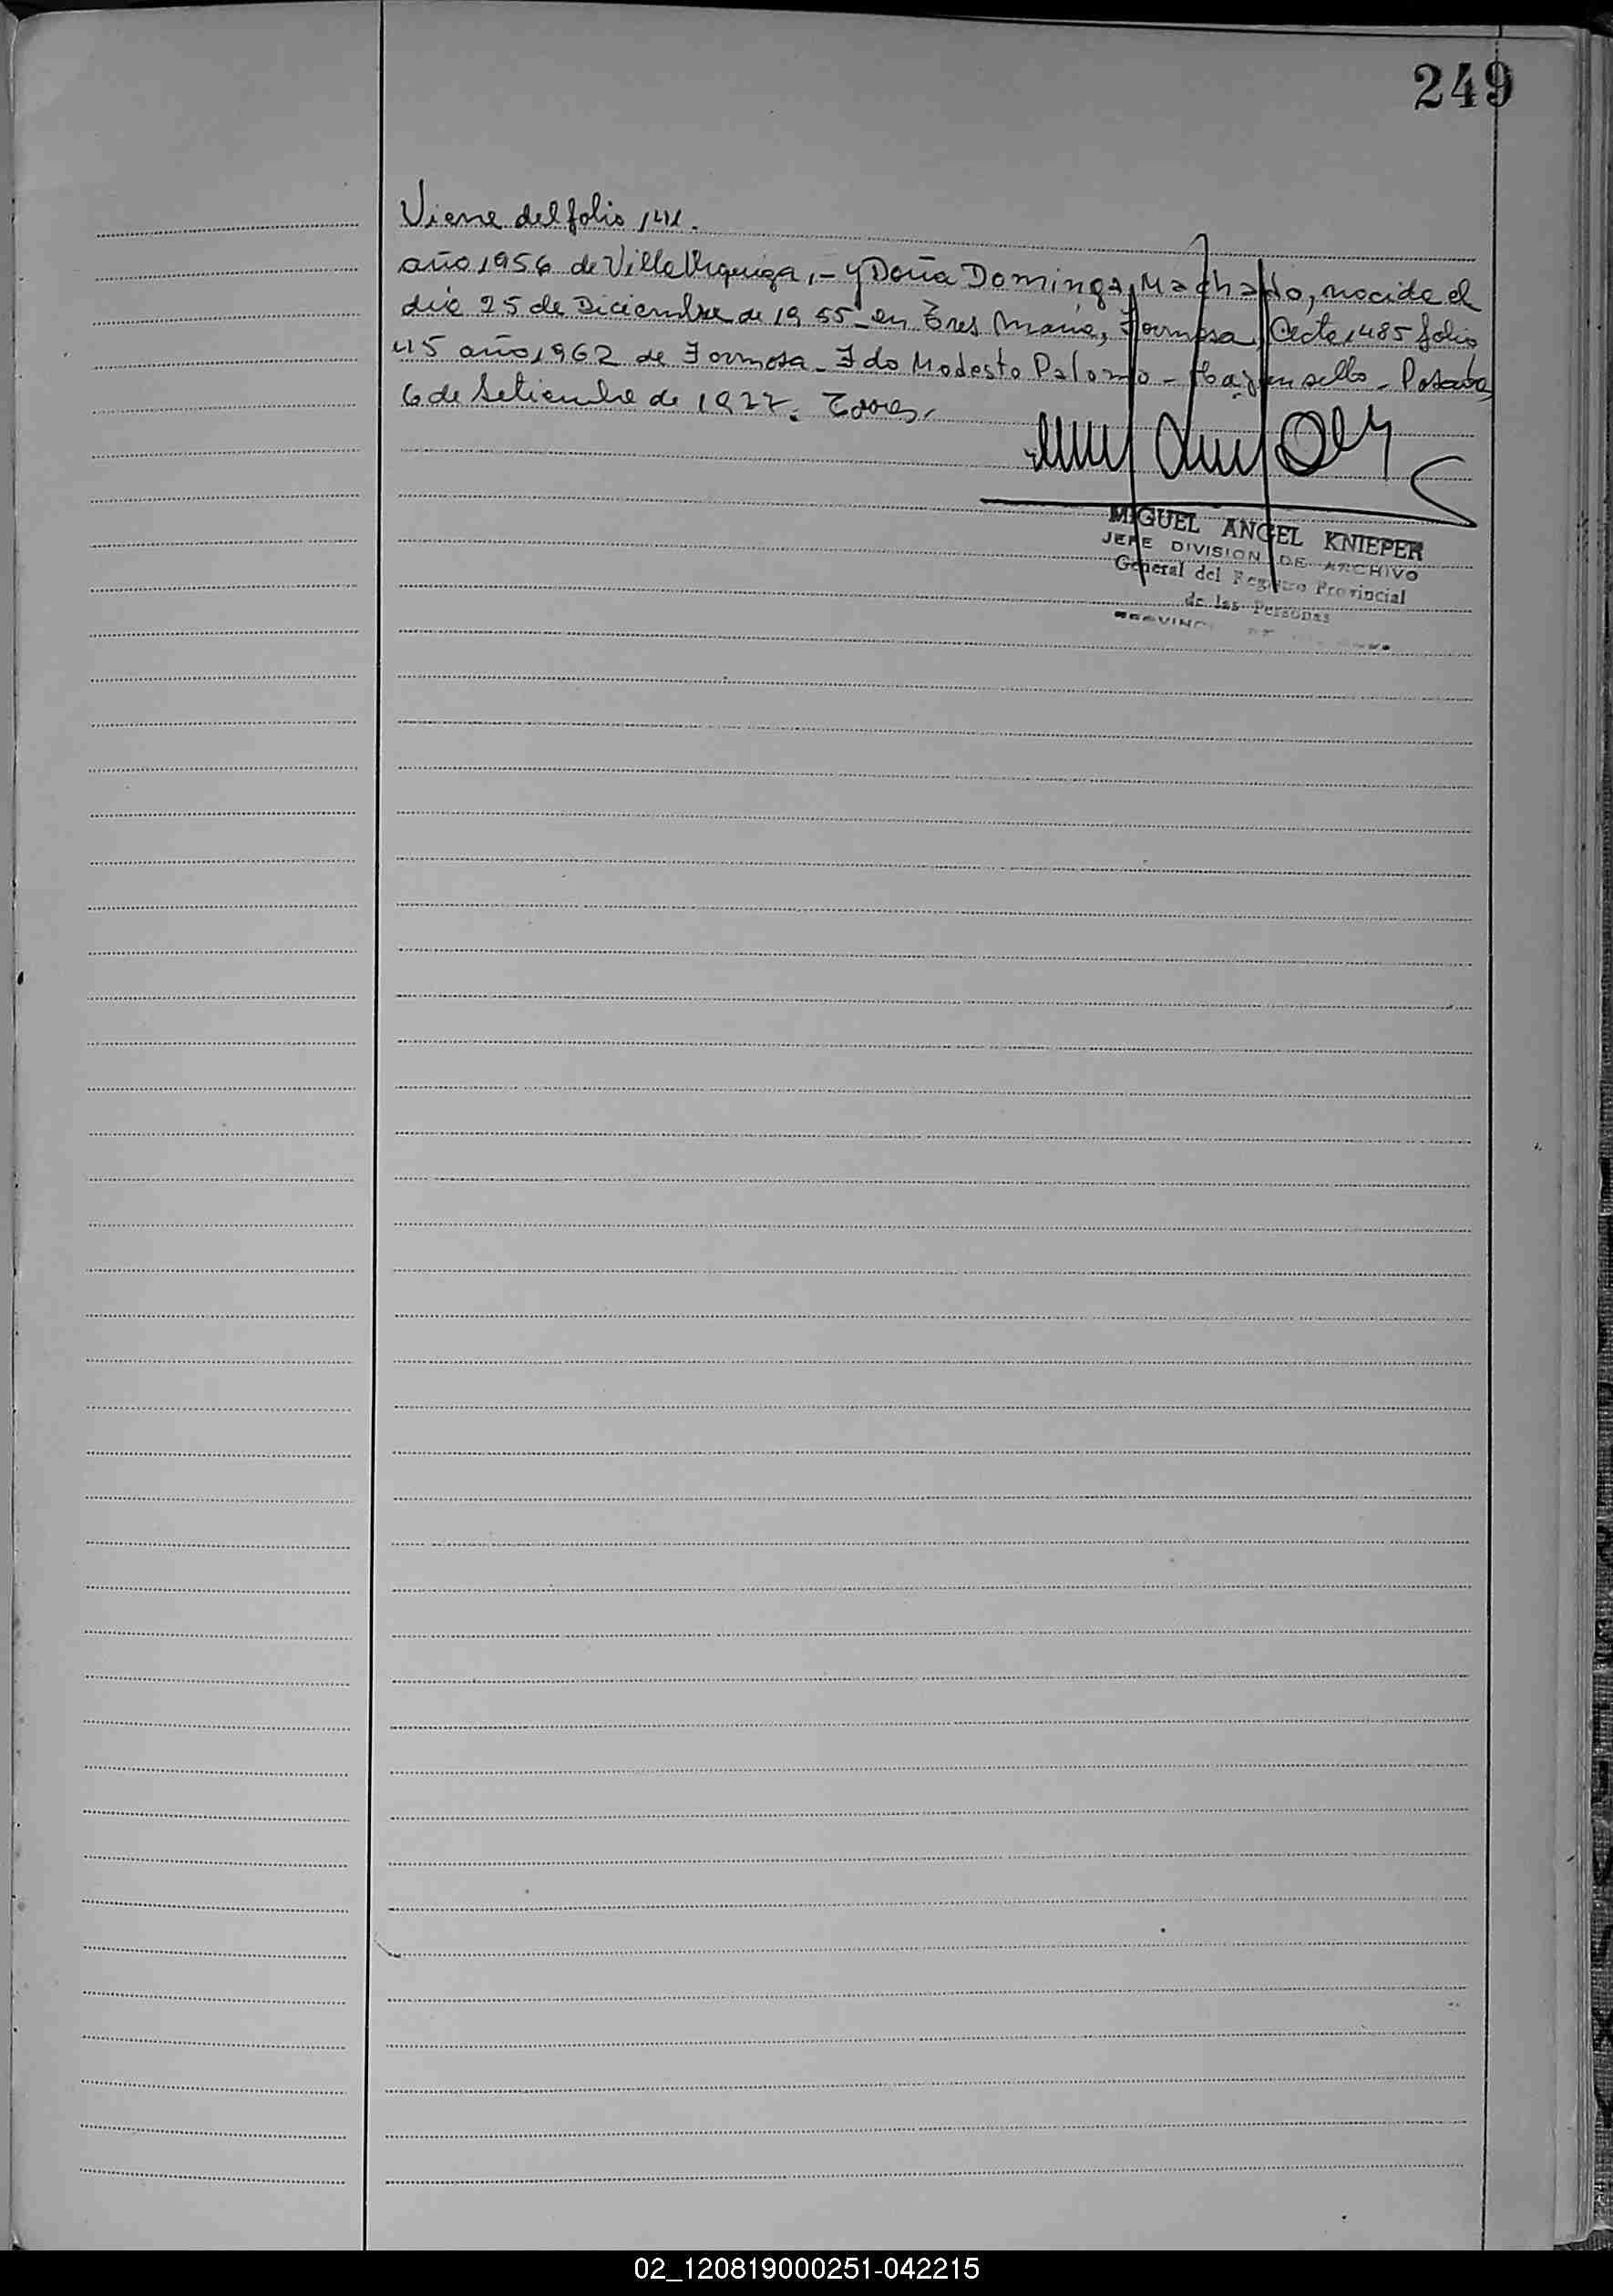 249
Viene del folio 141.
año 1956 de Villa Urquiza, - y Doña Dominga Machado, nacida el
día 25 de Diciembre de 1955 - en Tres María, Formosa, Acta 1485 folio
45 año 1962 de Formosa - Fdo Modesto Palomo - Hay un sello - Posadas,
6 de Setiembre de 1977. Torres.
MIGUEL ANGEL KNIEPER
JEFE DIVISION DE ARCHIVO
General del Registro Provincial
de las Personas
PROVINCIA DE
02_120819000251-042215